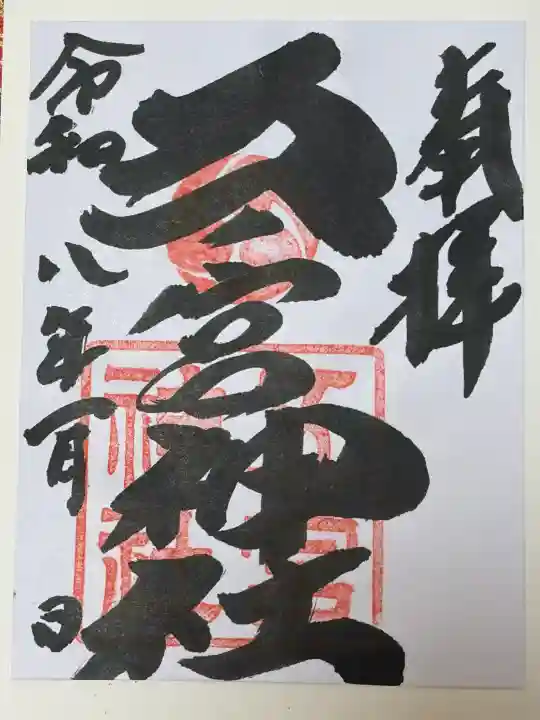 奉拝
五宮神社
令和八年一月 日